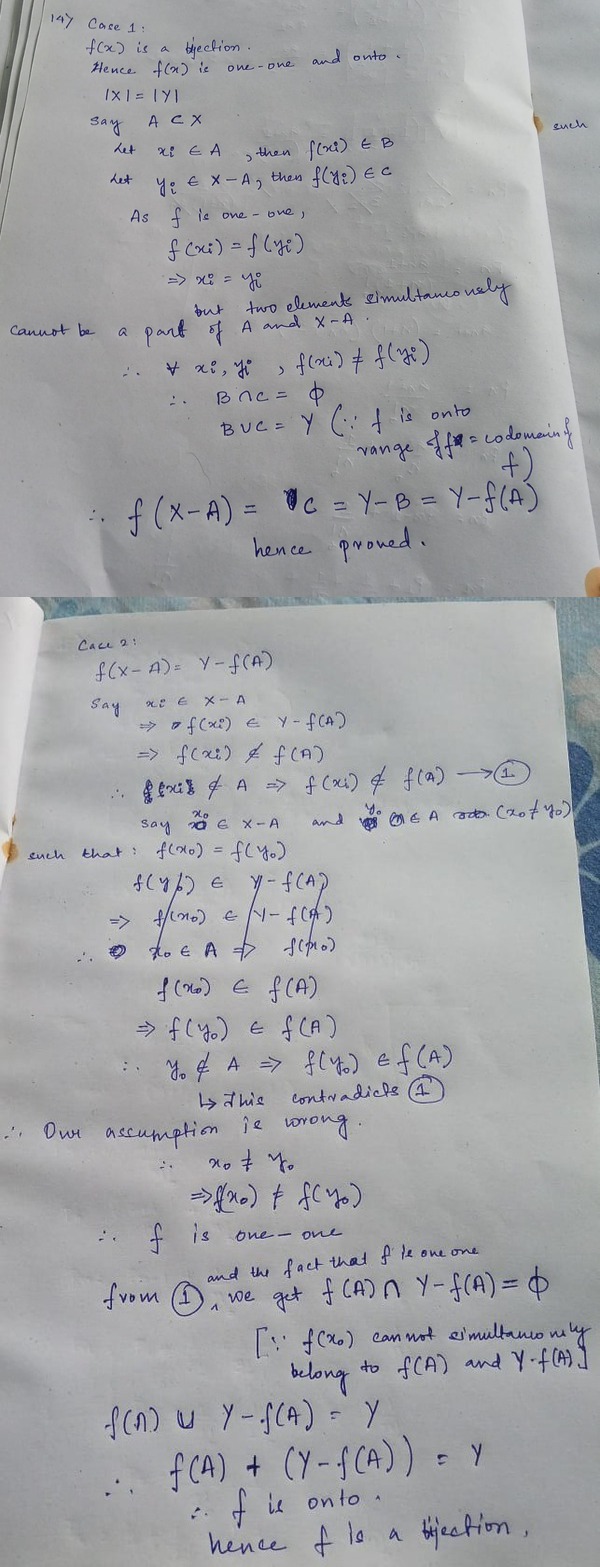 14) Case 1:
f(x) is a bijection.
Hence f(x) is one-one and onto.
|X| = |Y|
Say A ⊂ X
such
Let xi ∈ A, then f(xi) ∈ B
Let yi ∈ X-A, then f(yi) ∈ C
As f is one-one,
f(xi) = f(yi)
=> xi = yi
but two elements simultaneously
cannot be a part of A and X-A.
∴ ∀ xi, yi, f(xi) ≠ f(yi)
∴ B∩C = ϕ
B∪C = Y (∵ f is onto
range of f = codomain of
f)
∴ f(X-A) = C = Y-B = Y-f(A)
hence proved.
Case 2:
f(X-A) = Y-f(A)
Say xi ∈ X-A
=> f(xi) ∈ Y-f(A)
=> f(xi) ∉ f(A)
∴ xi ∉ A => f(xi) ∉ f(A) → ①
Say x₀ ∈ X-A and y₀ ∈ A (x₀≠y₀)
such that: f(x₀) = f(y₀)
f(y₀) ∈ Y-f(A)
=> f(x₀) ∈ Y-f(A)
∴ x₀ ∈ A => f(x₀)
f(x₀) ∈ f(A)
=> f(y₀) ∈ f(A)
∴ y₀ ∉ A => f(y₀) ∈ f(A)
↳ This contradicts ①
∴ Our assumption is wrong.
∴ x₀ ≠ y₀
=> f(x₀) ≠ f(y₀)
∴ f is one-one
and the fact that f is one one
from ①, we get f(A) ∩ Y-f(A) = ϕ
[∵ f(x₀) cannot simultaneously
belong to f(A) and Y-f(A)]
f(A) ∪ Y-f(A) = Y
∴ f(A) + (Y-f(A)) = Y
∴ f is onto.
hence f is a bijection.